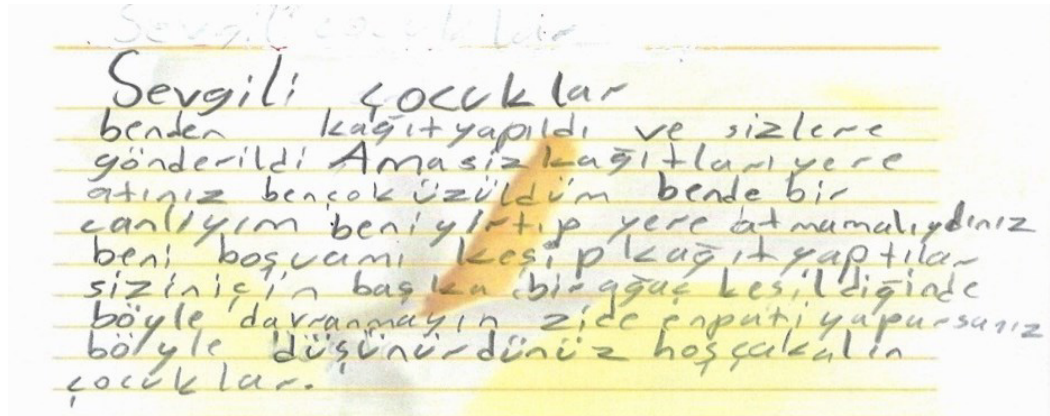 Sevgili çocuklar
Sevgili çocuklar
benden kağıt yapıldı ve sizlere
gönderildi Ama siz kağıtları yere
atınız ben çok üzüldüm bende bir
canlıyım beni yırtıp yere atmamalıydınız
beni boşuamı kesip kağıt yaptılar
sizin için başka bir ağaç kesildiğinde
böyle davranmayın zide enpati yaparsanız
böyle düşünürdünüz hoşçakalın
çocuklar.